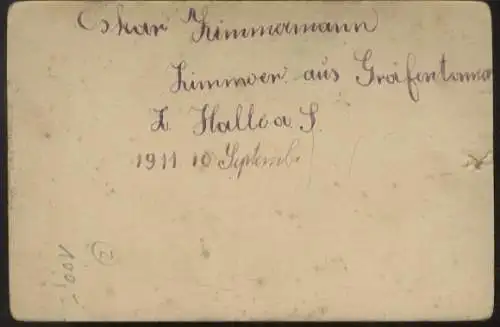 Oskar Zimmermann
Zimmer. aus Gräfentonna
Z Halle a S.
1911 10 Septemb
100,-